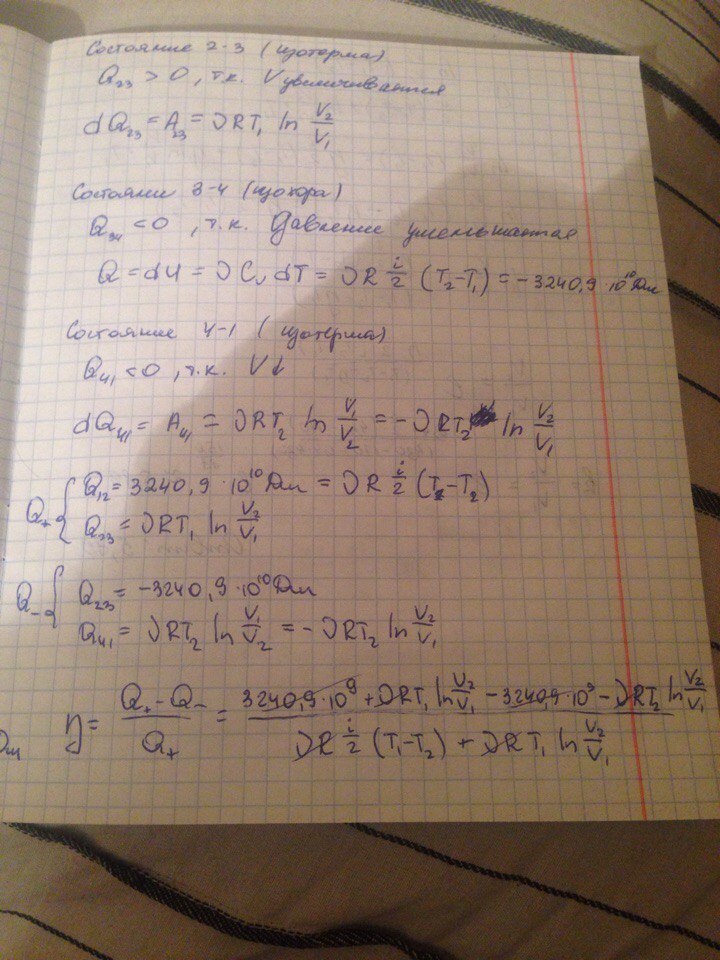 Состояние 2-3 (изотерма)
Q₂₃ > 0, т.к. V увеличивается
dQ₂₃ = A₂₃ = νRT₁ ln V₂/V₁
Состояни 3-4 (изохора)
Q₃₄ < 0, т.к. Давление уменьшается
Q = dU = νCᵥdT = νR i/2 (T₂-T₁) = -3240,9·10¹⁰Дж
Состояние 4-1 (изотерма)
Q₄₁ < 0, т.к. V↓
dQ₄₁ = A₄₁ = νRT₂ ln V₁/V₂ = -νRT₂ ln V₂/V₁
Q₊ { Q₁₂ = 3240,9·10¹⁰Дж = νR i/2 (T₁-T₂)
Q₂₃ = νRT₁ ln V₂/V₁
Q₋ { Q₂₃ = -3240,9·10¹⁰Дж
Q₄₁ = νRT₂ ln V₁/V₂ = -νRT₂ ln V₂/V₁
η = (Q₊-Q₋)/Q₊ = (3240,9·10⁹ + νRT₁ ln V₂/V₁ - 3240,9·10⁹ - νRT₂ ln V₂/V₁)/(νR i/2 (T₁-T₂) + νRT₁ ln V₂/V₁)